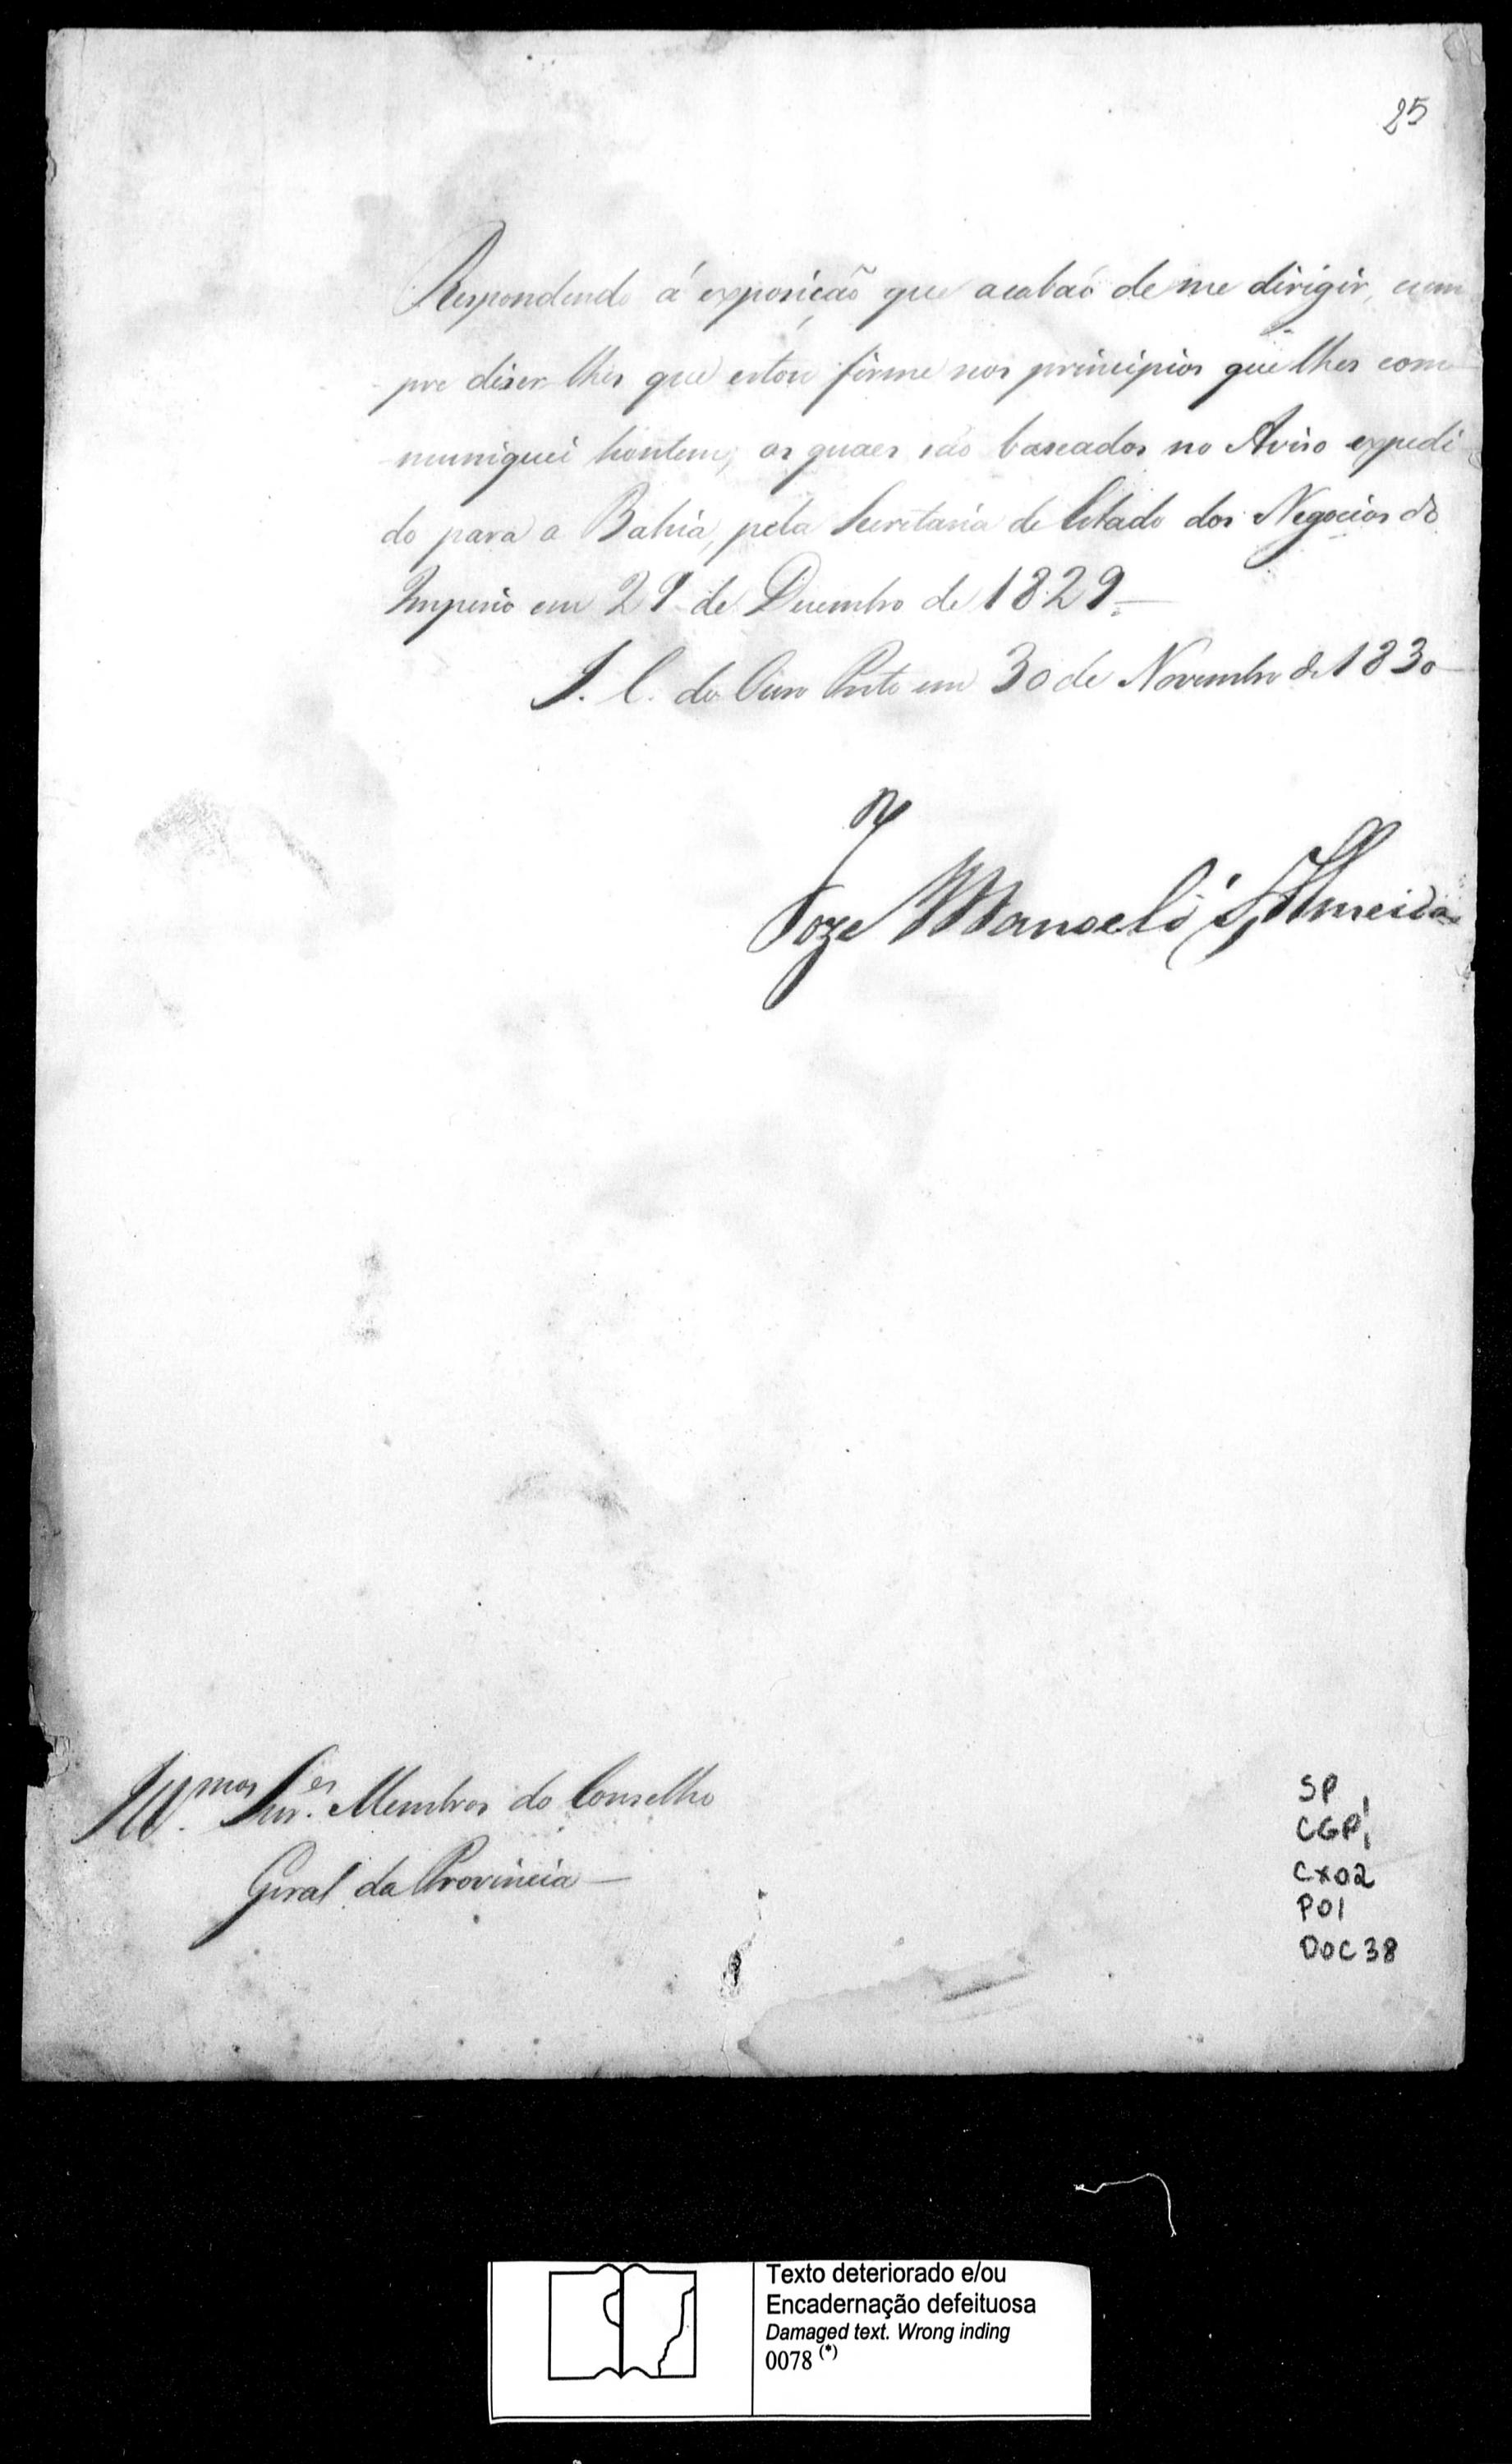 25
Respondendo á exposição que acabaõ de me dirigir, cum
pre diser-lhes que estou firme nos principios que lhes com-
muniquei hontem, os quaes saõ baseados no Aviso expedi-
do para a Bahia, pela Secretaria de Estado dos Negocios do
Imperio em 29 de Dezembro de 1829.
I. C. do Ouro Preto em 30 de Novembro de 1830
Joze Manoel d'Almeida
Ill.mos Snr.es Membros do Conselho
Geral da Provincia
SP
CGP1
CX02
P01
DOC 38
Texto deteriorado e/ou
Encadernação defeituosa
Damaged text. Wrong inding
0078 (*)